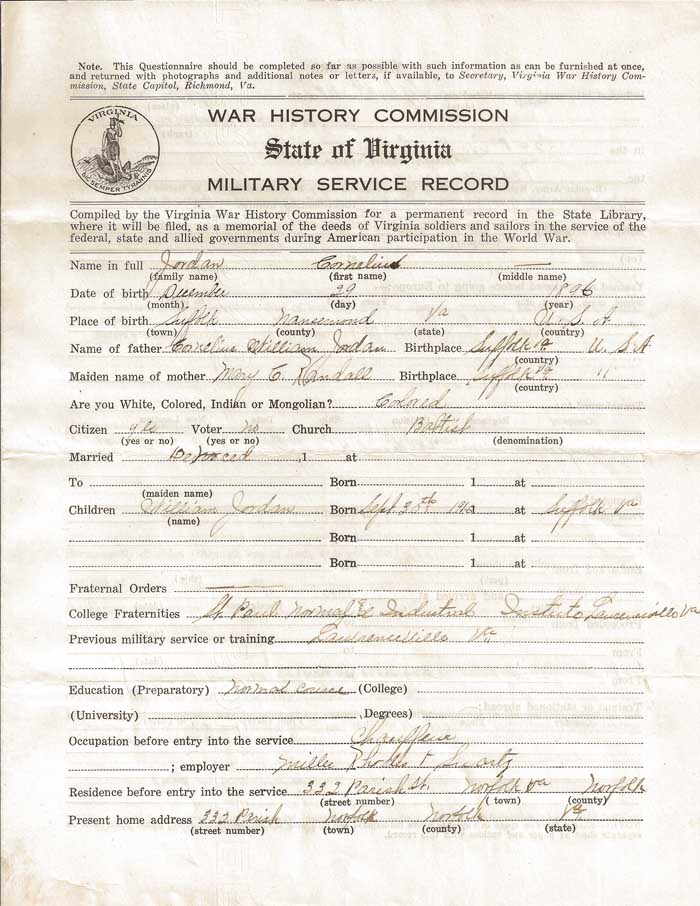 Note. This Questionnaire should be completed so far as possible with such information as can be furnished at once,
and returned with photographs and additional notes or letters, if available, to Secretary, Virginia War History Com-
mission, State Capitol, Richmond, Va.
VIRGINIA
SIC SEMPER TYRANNIS
WAR HISTORY COMMISSION
State of Virginia
MILITARY SERVICE RECORD
Compiled by the Virginia War History Commission for a permanent record in the State Library,
where it will be filed, as a memorial of the deeds of Virginia soldiers and sailors in the service of the
federal, state and allied governments during American participation in the World War.
Name in full Jordan Cornelius —
(family name) (first name) (middle name)
Date of birth December 29 1896
(month) (day) (year)
Place of birth Suffolk Nansemond Va U. S. A
(town) (county) (state) (country)
Name of father Cornelius William Jordan Birthplace Suffolk Va U. S. A
(country)
Maiden name of mother Mary C. Randall Birthplace Suffolk Va "
(country)
Are you White, Colored, Indian or Mongolian? Colored
Citizen yes Voter no Church Baptist
(yes or no) (yes or no) (denomination)
Married Divorced ,1 at
To Born 1 at
(maiden name)
Children William Jordan Born Sept. 30th 191 at Suffolk Va
(name)
Born 1 at
Born 1 at
Fraternal Orders —
College Fraternities St. Paul Normal & Industrial Lawrenceville Va
Previous military service or training Lawrenceville Va
Education (Preparatory) Normal course (College)
(University) (Degrees)
Occupation before entry into the service Chauffeur
; employer Miller Rhodes & Swartz
Residence before entry into the service 332 Parish St. Norfolk Va Norfolk
(street number) (town) (county)
Present home address 332 Parish Norfolk Norfolk Va
(street number) (town) (county) (state)